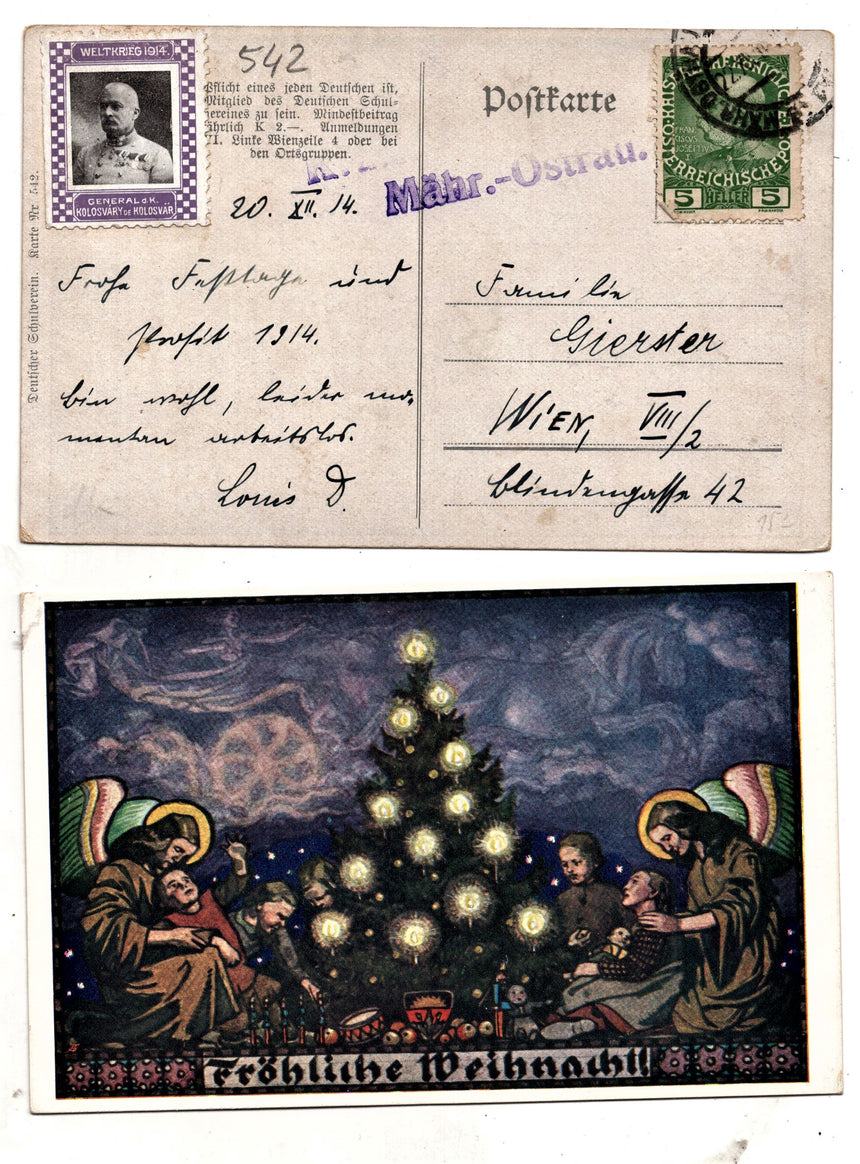 WELTKRIEG 1914.
GENERAL d.K.
KOLOSVÁRY DE KOLOSVÁR
542
Pflicht eines jeden Deutschen ist,
Mitglied des Deutschen Schul-
vereines zu sein. Mindestbeitrag
jährlich K 2.—. Anmeldungen
VI. Linke Wienzeile 4 oder bei
den Ortsgruppen.
Postkarte
5 HELLER 5
K.
Mähr.-Ostrau.
20. XII. 14.
Frohe Festtage und
prosit 1914.
bin wohl, leider mo-
mentan arbeitslos.
Louis D.
Familie
Gierster
WIEN, VIII/2
Blindengasse 42
Deutscher Schulverein. Karte Nr 542.
15-
Fröhliche Weihnacht!